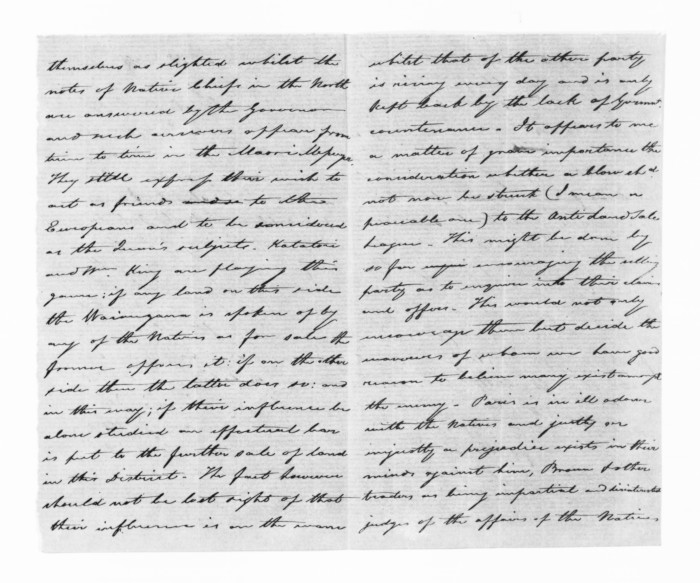 themselves as slighted whilst the
notes of Native Chiefs in the North
are answered by the Governor
and such answers appear from
time to time in the Maori
They still express their wish to
act as friends to the
Europeans and to be considered
as the Queen's subjects. Katatore
and Wm. King are playing this
game; if any land on this side
the Waiongana is spoken of by
any of the Natives as for sale the
former opposes it: if on the other
side then the latter does so: and
in this way; if their influence be
alone studied an effectual bar
is put to the further sale of land
in this District. The fact however
should not be lost sight of that
their influence is on the wane
whilst that of the other party
is rising every day and is only
kept back by the lack of Govmt.
countenance. It appears to me
a matter of grave importance the
consideration whether a blow shd.
not now be struck (I mean a
peaceable one) to the Anti Land Sale
League. This might be done by
so far encouraging the selling
party as to enquire into their claims
and offers. This would not only
encourage them but decide the
waverers of whom we have good
reason to believe many exist amongst
the enemy. Paris is in ill odour
with the Natives and justly or
unjustly a prejudice exists in their
minds against him, Brown & other
traders as being impartial and disinterested
judges of the affairs of the Natives